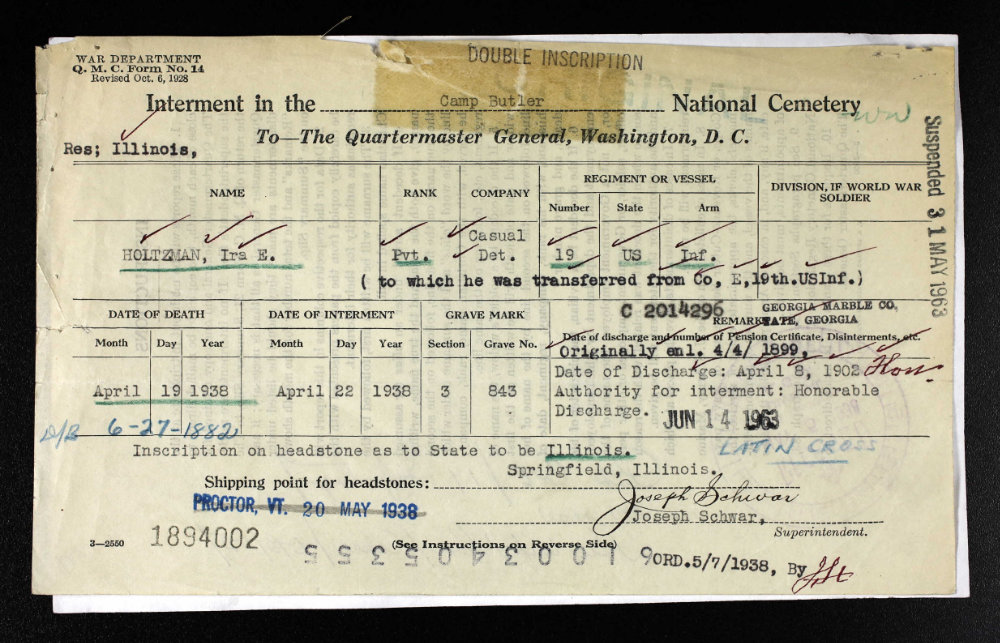 WAR DEPARTMENT
Q. M. C. Form No. 14
Revised Oct. 6, 1928
DOUBLE INSCRIPTION
Interment in the Camp Butler National Cemetery
To—The Quartermaster General, Washington, D. C.
Res; Illinois,
Suspended 31 MAY 1963
NAME RANK COMPANY REGIMENT OR VESSEL DIVISION, IF WORLD WAR SOLDIER
Number State Arm
HOLTZMAN, Ira E. Pvt. Casual Det. 19 US Inf.
( to which he was transferred from Co, E,19th.USInf.)
C 2014296 GEORGIA MARBLE CO,
REMARKS TATE, GEORGIA
DATE OF DEATH DATE OF INTERMENT GRAVE MARK
Date of discharge and number of Pension Certificate, Disinterments, etc.
Month Day Year Month Day Year Section Grave No.
Originally enl. 4/4/ 1899,
Date of Discharge: April 8, 1902 Hon.
April 19 1938 April 22 1938 3 843
Authority for interment: Honorable
Discharge. JUN 14 1963
D/B 6-27-1882
LATIN CROSS
Inscription on headstone as to State to be Illinois.
Springfield, Illinois.
Shipping point for headstones:
Joseph Schwar
PROCTOR, VT. 20 MAY 1938
Joseph Schwar,
Superintendent.
1894002
3—2550
(See Instructions on Reverse Side)
ORD.5/7/1938, By